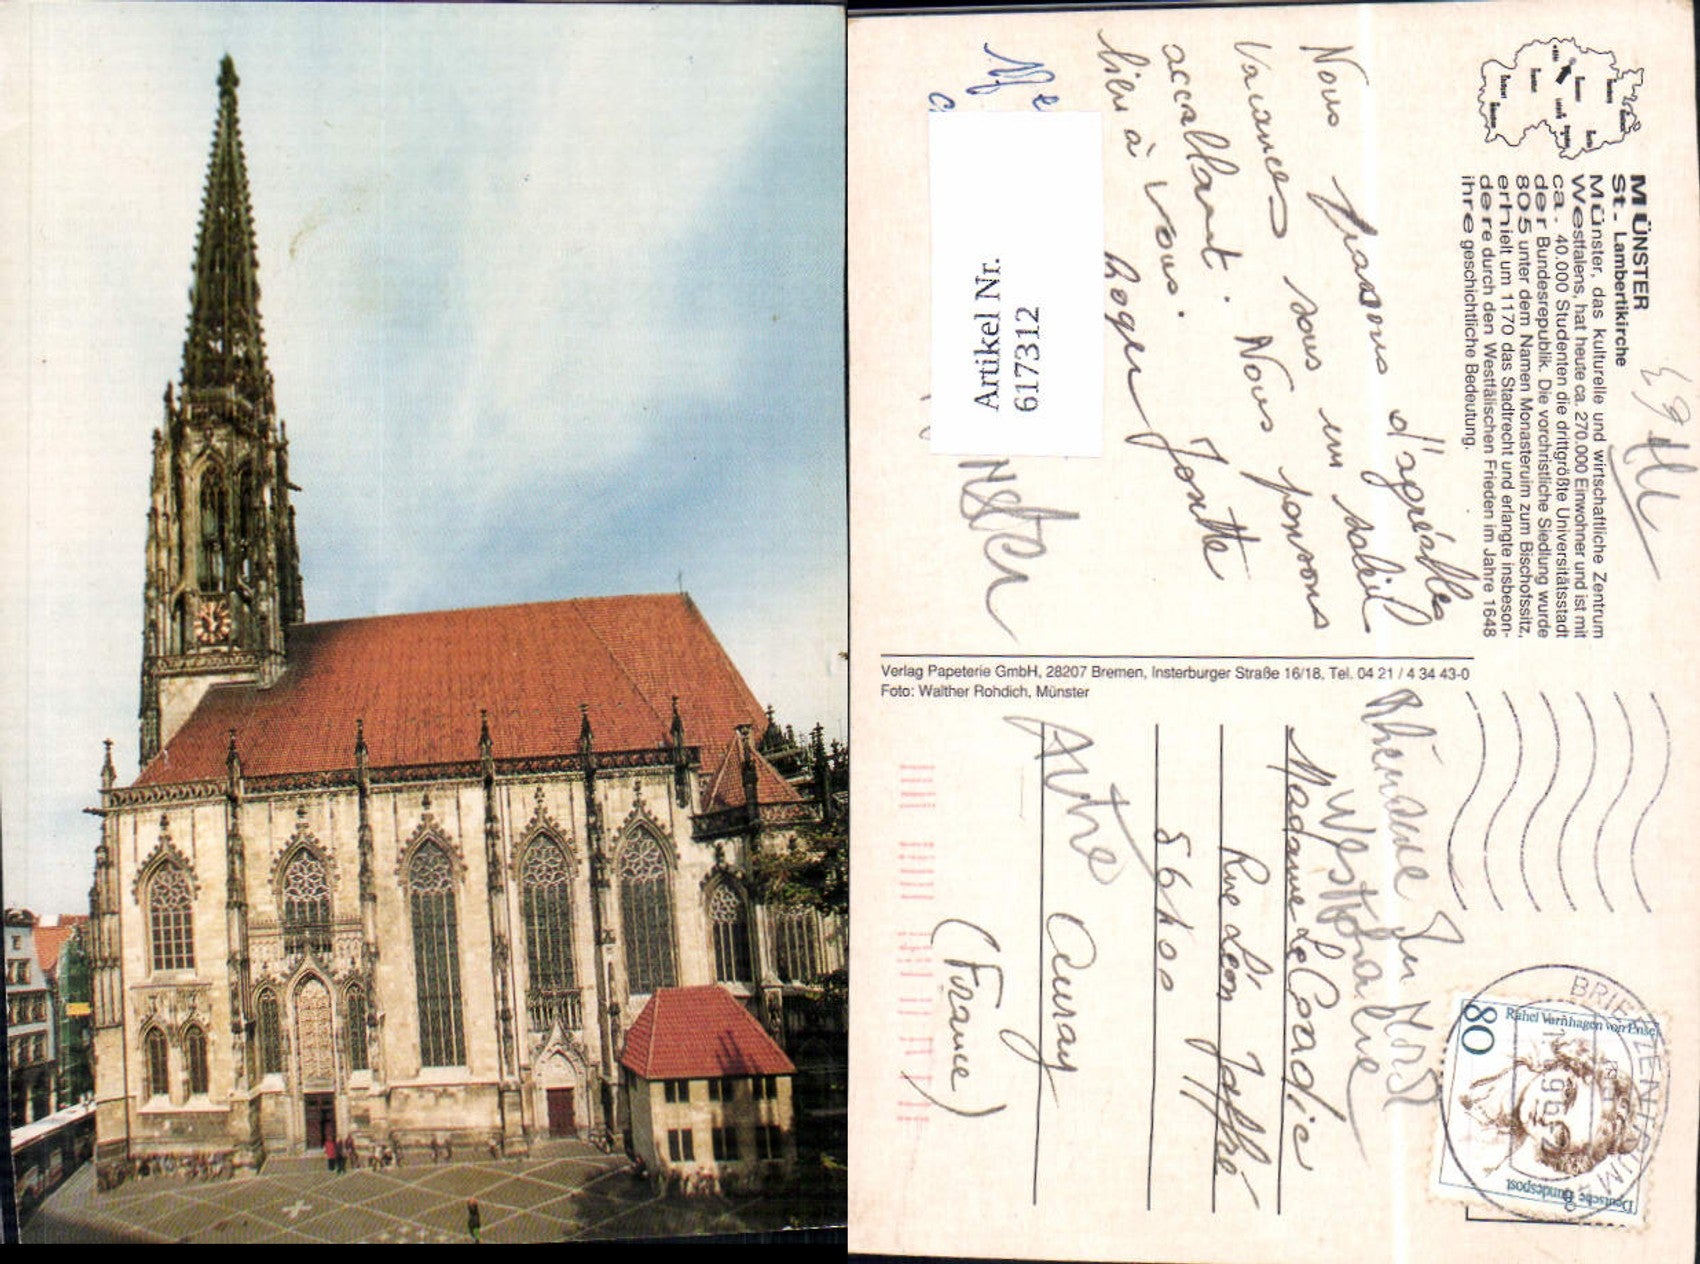 MÜNSTER
St. Lambertikirche
Münster, das kulturelle und wirtschaftliche Zentrum
Westfalens, hat heute ca. 270.000 Einwohner und ist mit
ca. 40.000 Studenten die drittgrößte Universitätsstadt
der Bundesrepublik. Die vorchristliche Siedlung wurde
805 unter dem Namen Monasteruim zum Bischofssitz,
erhielt um 1170 das Stadtrecht und erlangte insbeson-
dere durch den Westfälischen Frieden im Jahre 1648
ihre geschichtliche Bedeutung.
Nous passons d'agréables
vacances sous un soleil
accablant. Nous pensons
bien à vous.
Roger Josette
Artikel Nr.
617312
Verlag Papeterie GmbH, 28207 Bremen, Insterburger Straße 16/18, Tel. 04 21 / 4 34 43-0
Foto: Walther Rohdich, Münster
Rhénanie Du Nord
Westphalie
Madame Le Coradic
Rue Léon Joffré
56400
Auray
(France)
BRIEFZENTRUM
80
Rahel Varnhagen von Ense
Deutsche Bundespost